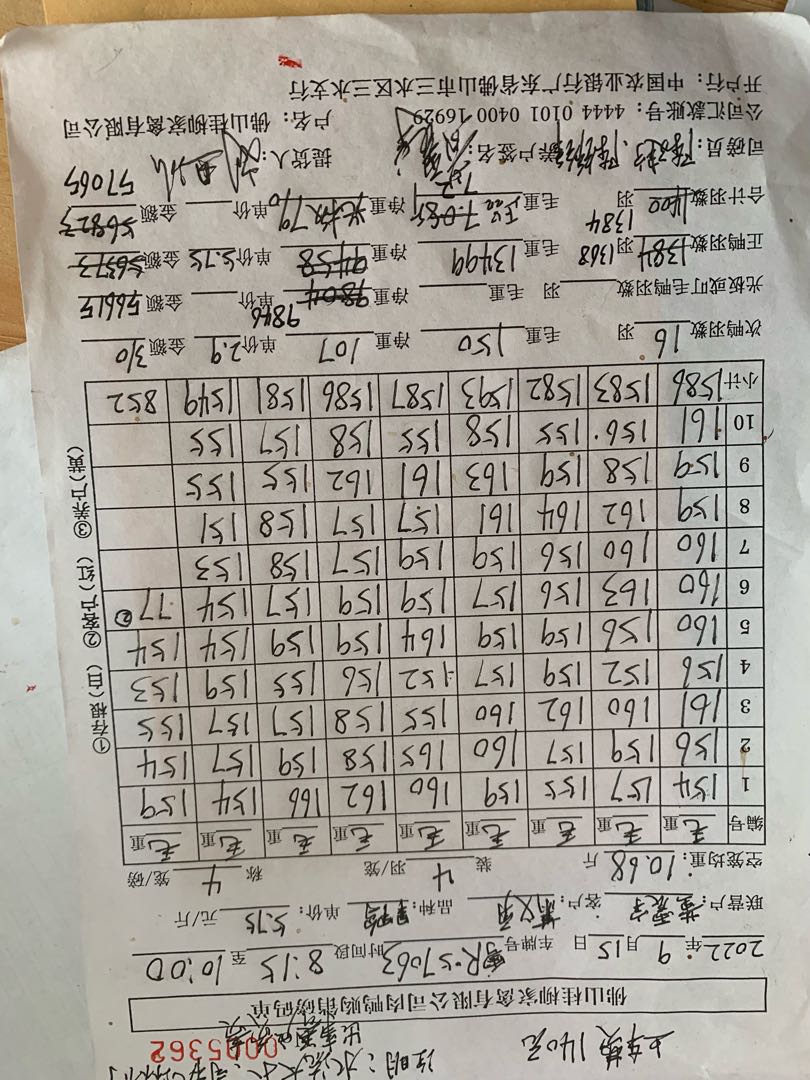 注明:水流大
上车费 140元
0005362
佛山桂柳家禽有限公司肉鸭购销磅码单
2022年 9 月 15 日 车牌号 R·S7063 时间段 8:15 至 10:00
联营户: 客户: 品种: 单价: 5.75 元/斤
空笼均重: 10.68 斤 装 4 羽/笼 称 4 笼/磅
编号 毛重 毛重 毛重 毛重 毛重 毛重 毛重 毛重 毛重
1 154 157 155 159 160 162 166 154 159
2 156 159 157 160 165 158 159 157 154
3 161 160 162 160 155 158 157 157 155
4 156 152 159 157 152 156 155 159 153
5 160 156 159 159 164 159 159 154 154
6 160 163 156 157 159 159 157 154 77②
7 160 160 156 159 159 157 158 153
8 159 162 164 161 157 157 158 151
9 159 158 159 163 161 162 155 155
10 161 156 155 158 155 158 157 155
小计 1586 1583 1582 1593 1587 1586 1581 1549 852
①存根(白) ②客户(红) ③养户(黄)
次鸭羽数 16 羽 毛重 150 净重 107 单价 2.9 金额 310
9846
光板或叮毛鸭羽数 羽 毛重 净重 9804 单价 金额 56615
正鸭羽数 1384 羽 1368 毛重 13499 净重 9458 单价 5.75 金额 56373
1384
合计羽数 1400 羽 毛重 净重 单价 金额 56823
57065
司磅员: 养户签名: 提货人:
公司汇款账号: 4444 0101 0400 16929 户名: 佛山桂柳家禽有限公司
开户行: 中国农业银行广东省佛山市三水区三水支行